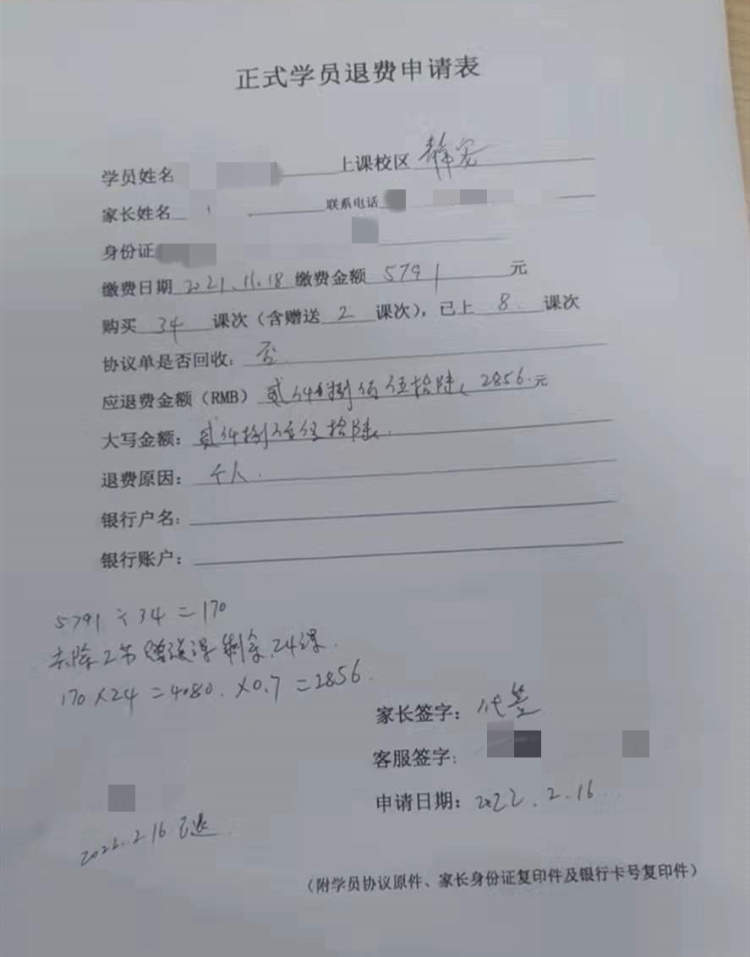 正式学员退费申请表
学员姓名 上课校区 静安
家长姓名 联系电话
身份证
缴费日期 2021.11.18 缴费金额 5791 元
购买 34 课次（含赠送 2 课次），已上 8. 课次
协议单是否回收: 否
应退费金额（RMB） 贰仟捌佰伍拾陆、2856.元
大写金额: 贰仟捌佰伍拾陆、
退费原因: 个人.
银行户名:
银行账户:
5791 ÷ 34 = 170
去除2节赠送课剩余.24课.
170 × 24 = 4080. ×0.7 = 2856.
家长签字: 代签
客服签字:
申请日期: 2022.2.16
2022.2.16 已退
（附学员协议原件、家长身份证复印件及银行卡号复印件）